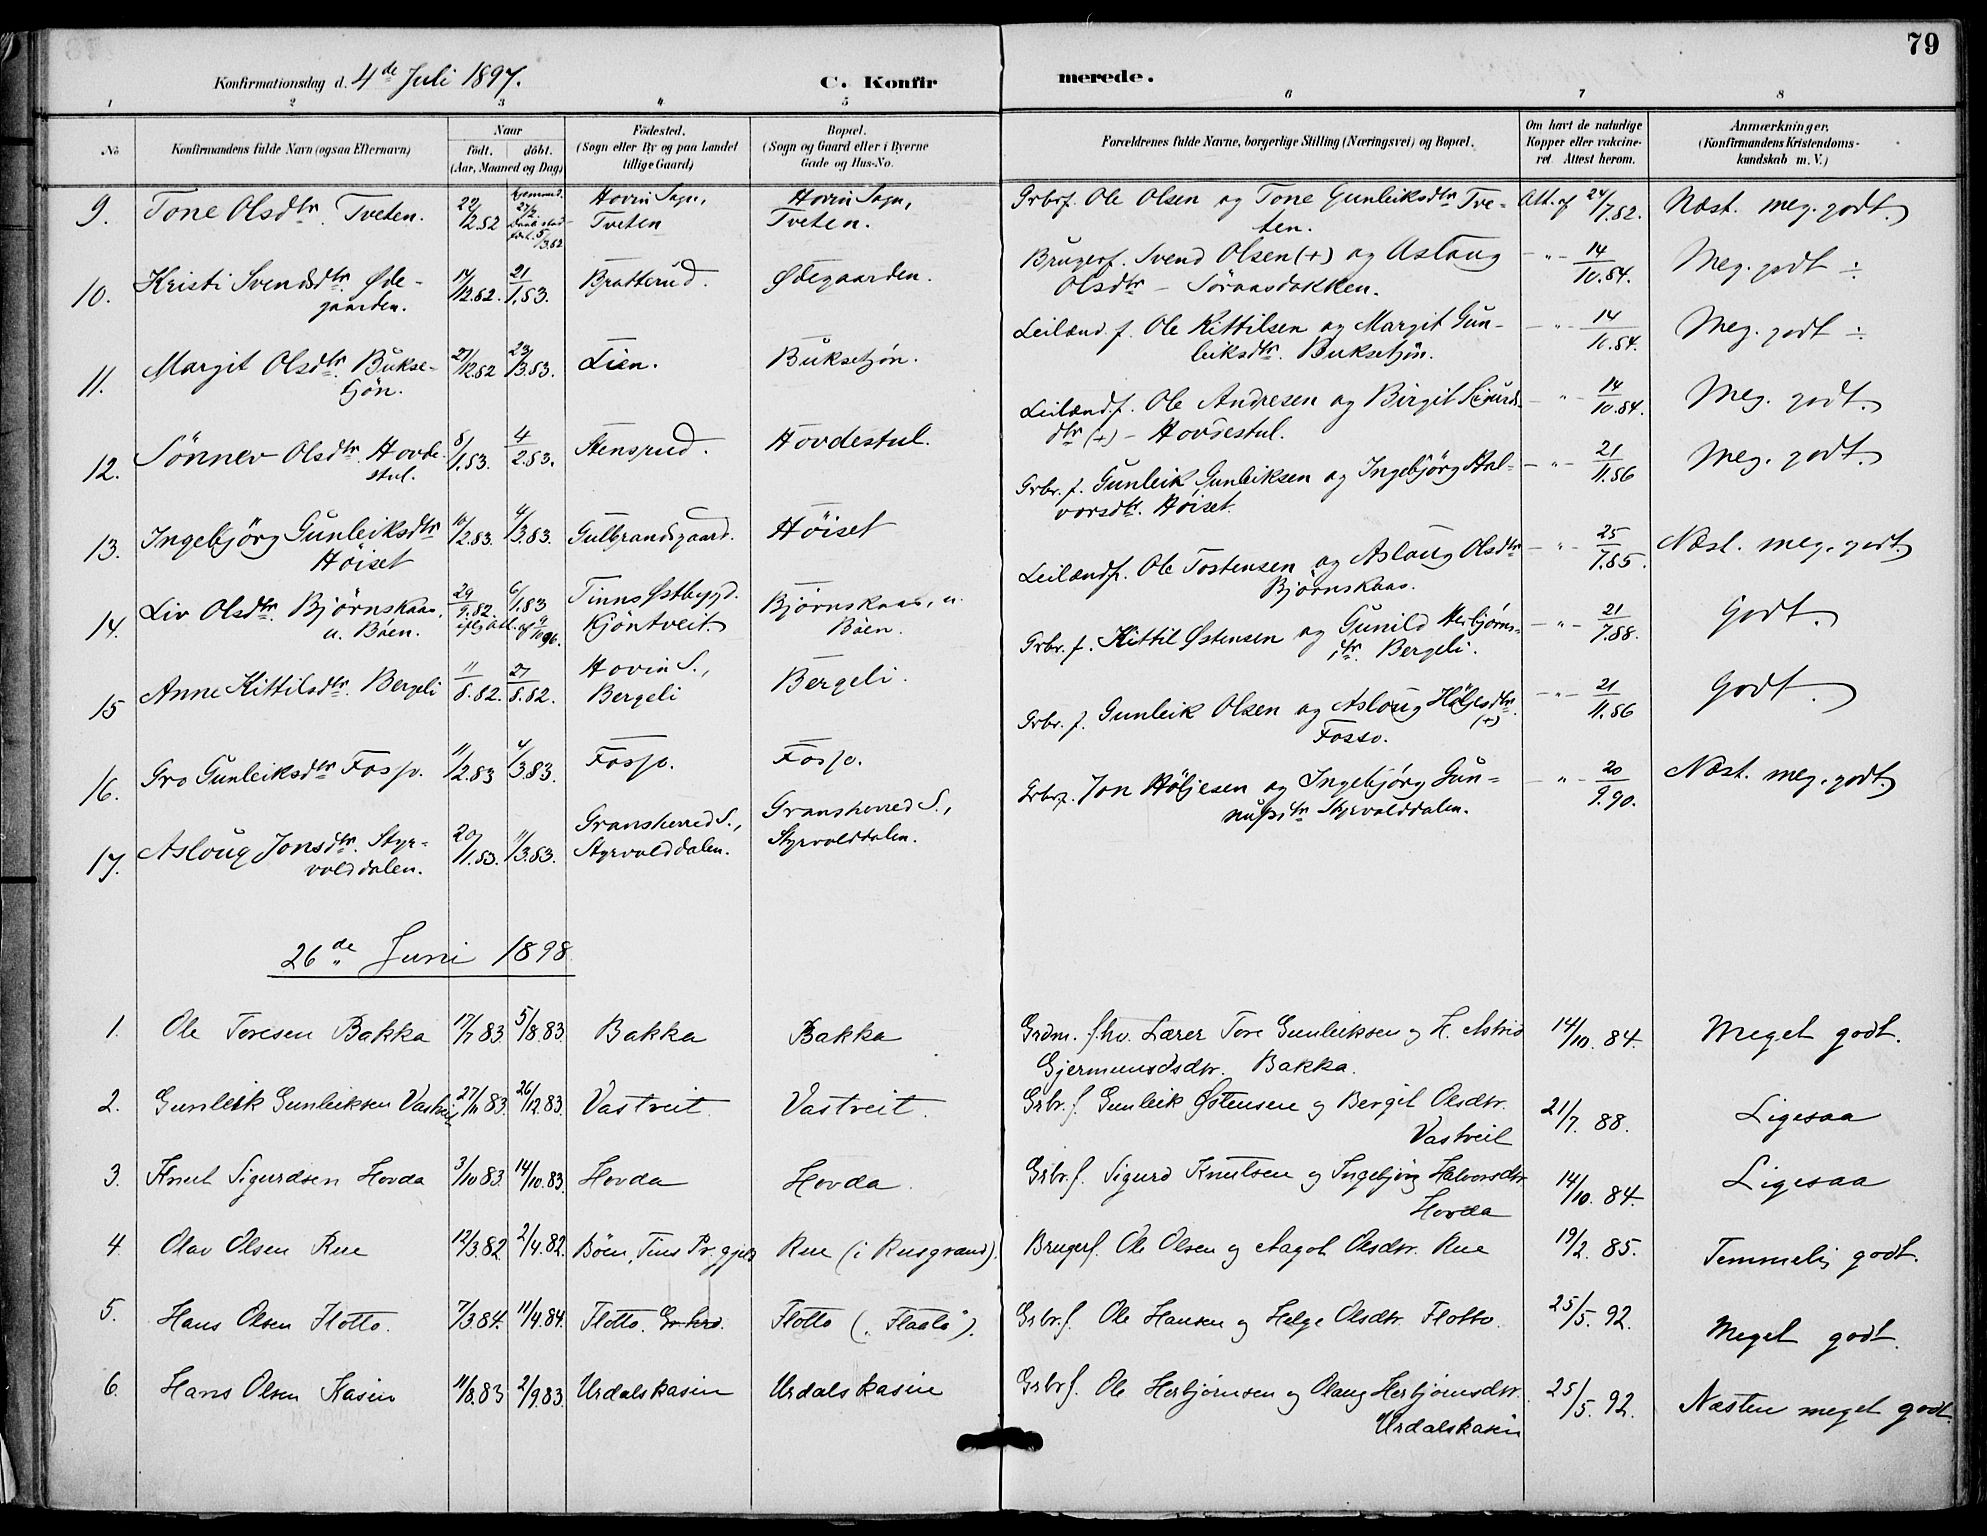 79
Konfirmationsdag d. 4de Juli 1897.
C. Konfirmerede.
1 2 3 4 5 6 7 8
No
Konfirmandens fulde Navn (ogsaa Efternavn)
Naar
födt. döbt.
(Aar, Maaned og Dag)
Födested.
(Sogn eller By og paa Landet
tillige Gaard)
Bopæl.
(Sogn og Gaard eller i Byerne
Gade og Hus-No.
Forældrenes fulde Navne, borgerlige Stilling (Næringsvei) og Bopæl.
Om havt de naturlige
Kopper eller vakcine-
ret. Attest herom.
Anmærkninger.
(Konfirmandens Kristendoms-
kundskab m. V.)
9. Tone Olsdtr. Tveten. 22/12.82 hjemmed. 27/2. Daab stad- 5/3.82 Hovin Sogn, Tveten Hovin Sogn, Tveten. Grbrf. Ole Olsen og Tone Gunleiksdtr Tve-
ten. Att. af 24/7.82. Næst. meg. godt.
10. Kristi Svendsdtr. Øde-
gaarden. 14/12.82. 21/1.83. Bratterud. Ødegaarden. Brugerf. Svend Olsen (+) og Aslaug
Olsdtr – Söraasdokken. – " – 14/10.84. Meg. godt ÷
11. Margit Olsdtr. Bukse-
tjön. 27/12.82 23/3.83. Lien. Buksetjón. Leilænd. f. Ole Kittilsen og Margit Gun-
leiksdtr. Buksetjön. – " – 14/10.84. Meg. godt ÷
12. Sönnev Olsdtr. Hovde-
stul. 8/1.83. 4/2.83. Stensrud. Hovdestul. Leilændf. Ole Andresen og Birgit Sigurds-
dtr (+) – Hovdestul. – " – 14/10.84. Meg. godt.
13. Ingebjörg Gunleiksdtr
Höiset 10/2.83. 4/3.83. Gulbrandsgaard. Höiset Grbr. f. Gunleik Gunleiksen og Ingebjörg Hal-
vorsdtr. Höiset. – " – 21/11.86 Meg. godt.
14. Liv Olsdtr. Björnskaas,
u. Böen. 29/9.82. 6/1.83 iflg. Att. af 9/10 96. Tinns Østbygd. Kjöntveit. Björnskaas, u.
Böen. Leilændf. Ole Tostensen og Aslaug Olsdtr
Björnskaas. – " – 25/7.85. Næst. meg. godt.
15 Anne Kittilsdtr. Bergeli 11/8.82. 27/8.82. Hovin S., Bergeli Bergeli. Grbr. f. Kittil Østensen og Gunild Herbjörns-
dtr. Bergeli. – " – 21/7.88. Godt.
16. Gro Gunleiksdtr Fosso. 11/2.83 4/3.83. Fosso. Fosso. Grbr. f. Gunleik Olsen og Aslaug Höljesdtr.
(+)
Fosso. – " – 21/11.86 Godt.
17. Aslaug Jonsdtr. Styr-
volddalen. 20/1.83. 11/3.83. Gransherred S., Styrvolddalen. Gransherred S.,
Styrvolddalen. Grbrf. Jon Höljesen og Ingebjörg Gun-
nufsdtr Styrvolddalen. – " – 20/9.90. Næst. meg. godt.
26de Juni 1898
1. Ole Toresen Bakka 17/7 83. 5/8.83. Bakka Bakka Grdm. f.hv. Lærer Tore Gunleiksen og H. Astrid
Gjermundsdtr. Bakka. 14/10. 84. Meget godt.
2. Gunleik Gunleiksen Vastveit 27/11 83. 26/12.83. Vastveit. Vastveit. Grbr. f. Gunleik Østensen og Bergit Olsdtr.
Vastveit 21/7. 88. Ligesaa
3. Knut Sigurdsen Hovda 3/10 83. 14/10.83. Hovda Hovda. Grbr. f. Sigurd Knutsen og Ingebjörg Halvorsdtr
Hovda 14/10. 84. Ligesaa
4. Olav Olsen Rue 12/3.82. 2/4.82. Böen, Tins Pr.gjeld Rue (i Rusgrænd). Brugerf. Ole Olsen og Aagot Olsdtr. Rue 19/2. 85. Temmelig godt.
5. Hans Olsen Flotto. 7/3.84. 11/4.84. Flotto. Gr.herd. Flotto ("Flaatö"). Grbr. f. Ole Hansen og Helge Olsdtr. Flotto. 25/5. 92. Meget godt
6. Hans Olsen Kasin 11/8.83 2/9.83 Urdalskasin Urdalskasin Grbrf. Ole Herbjørnsen og Olaug Herbjørnsdtr.
Urdalskasin 25/5. 92. Næsten meget godt.